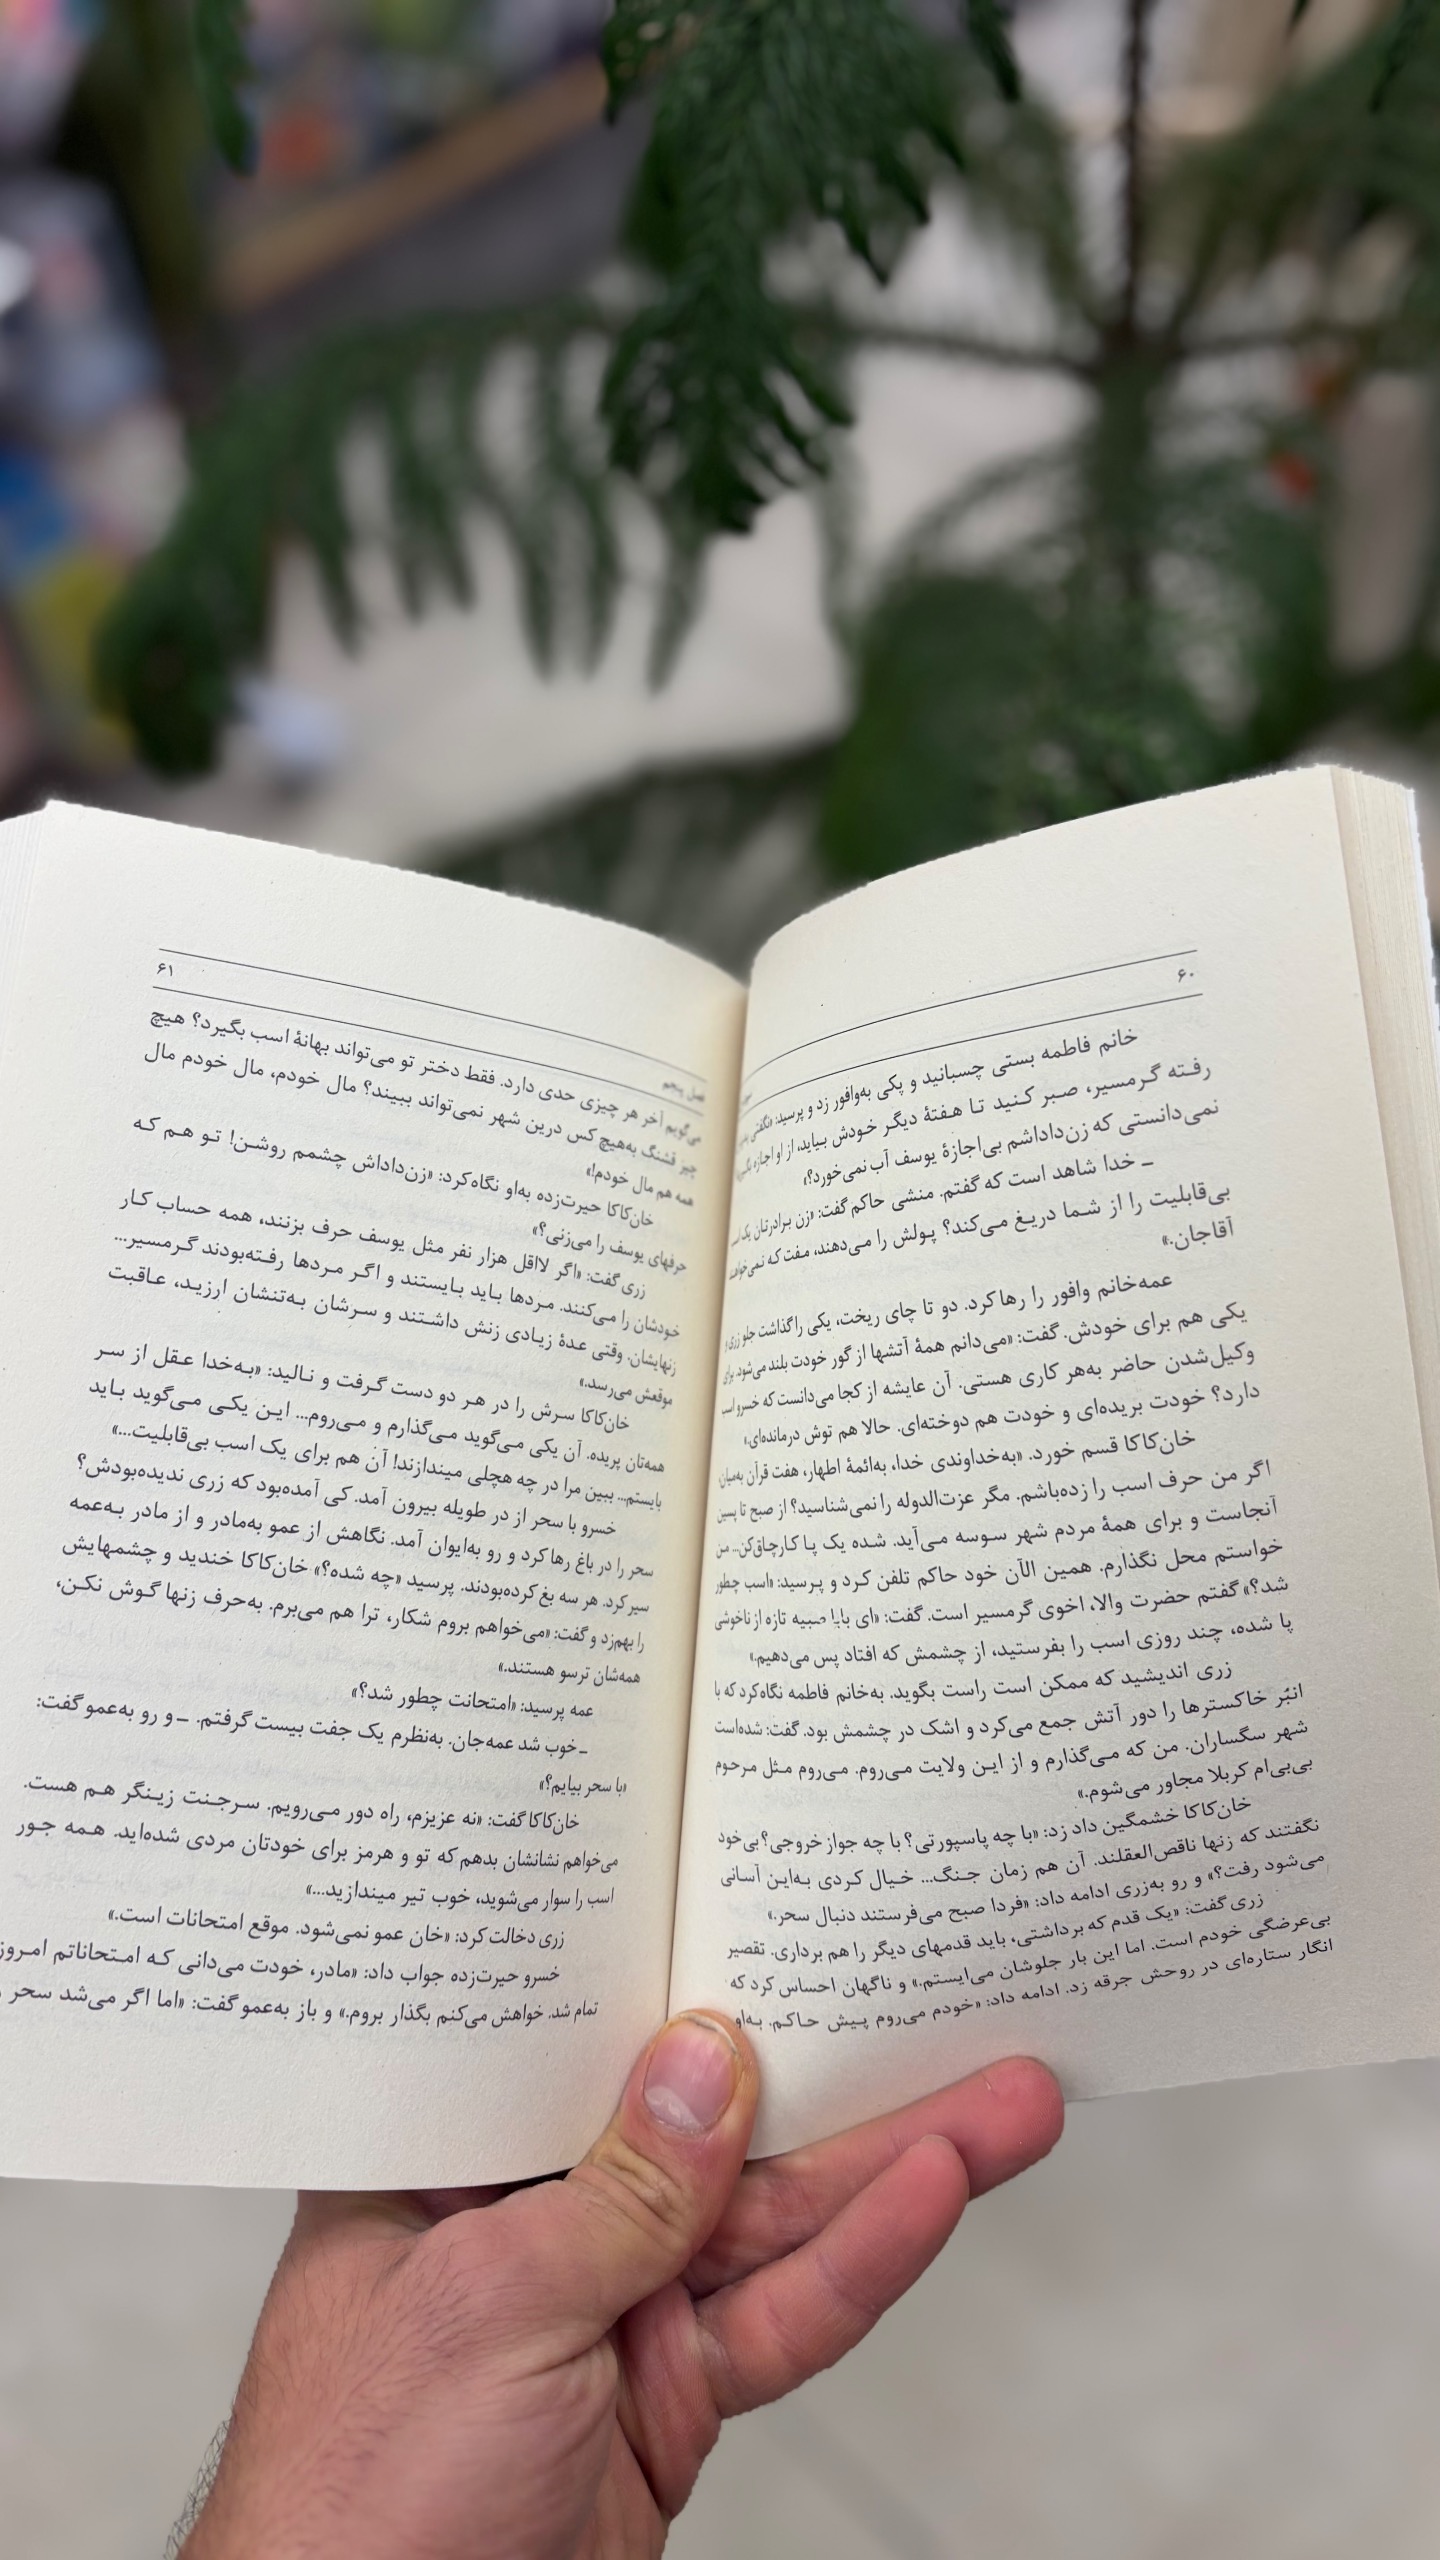 ۶۰
خانم فاطمه بستی چسبانید و پکی به‌وافور زد و پرسید: «نگفتی
رفته گرمسیر، صبر کنید تا هفتهٔ دیگر خودش بیاید، از او اجازه
نمی‌دانستی که زن‌داداشم بی‌اجازهٔ یوسف آب نمی‌خورد؟»
ـ خدا شاهد است که گفتم. منشی حاکم گفت: «زن برادرتان یک
بی‌قابلیت را از شما دریغ می‌کند؟ پولش را می‌دهند، مفت که نمی‌خواهند
آقاجان.»
عمه‌خانم وافور را رها کرد. دو تا چای ریخت، یکی را گذاشت جلو زری و
یکی هم برای خودش. گفت: «می‌دانم همهٔ آتشها از گور خودت بلند می‌شود. برای
وکیل‌شدن حاضر به‌هر کاری هستی. آن عایشه از کجا می‌دانست که خسرو اسب
دارد؟ خودت بریده‌ای و خودت هم دوخته‌ای. حالا هم توش درمانده‌ای.»
خان‌کاکا قسم خورد. «به‌خداوندی خدا، به‌ائمهٔ اطهار، هفت قرآن به‌میان،
اگر من حرف اسب را زده‌باشم. مگر عزت‌الدوله را نمی‌شناسید؟ از صبح تا پسین
آنجاست و برای همهٔ مردم شهر سوسه می‌آید. شده یک پا کارچاق‌کن... من
خواستم محل نگذارم. همین الآن خود حاکم تلفن کرد و پرسید: «اسب چطور
شد؟» گفتم حضرت والا، اخوی گرمسیر است. گفت: «ای بابا! صبیه تازه از ناخوشی
پا شده، چند روزی اسب را بفرستید، از چشمش که افتاد پس می‌دهیم.»
زری اندیشید که ممکن است راست بگوید. به‌خانم فاطمه نگاه کرد که با
انبُر خاکسترها را دور آتش جمع می‌کرد و اشک در چشمش بود. گفت: شده‌است
شهر سگساران. من که می‌گذارم و از این ولایت می‌روم. می‌روم مثل مرحوم
بی‌بی‌ام کربلا مجاور می‌شوم.»
خان‌کاکا خشمگین داد زد: «با چه پاسپورتی؟ با چه جواز خروجی؟ بی‌خود
نگفتند که زنها ناقص‌العقلند. آن هم زمان جنگ... خیال کردی به‌این آسانی
می‌شود رفت؟» و رو به‌زری ادامه داد: «فردا صبح می‌فرستند دنبال سحر.»
زری گفت: «یک قدم که برداشتی، باید قدمهای دیگر را هم برداری. تقصیر
بی‌عرضگی خودم است. اما این بار جلوشان می‌ایستم.» و ناگهان احساس کرد که
انگار ستاره‌ای در روحش جرقه زد. ادامه داد: «خودم می‌روم پیش حاکم. به‌او
فصل پنجم ۶۱
می‌گویم آخر هر چیزی حدی دارد. فقط دختر تو می‌تواند بهانهٔ اسب بگیرد؟ هیچ
چیز قشنگ به‌هیچ کس درین شهر نمی‌تواند ببیند؟ مال خودم، مال خودم مال
همه هم مال خودم!»
خان‌کاکا حیرت‌زده به‌او نگاه کرد: «زن‌داداش چشمم روشن! تو هم که
حرفهای یوسف را می‌زنی؟»
زری گفت: «اگر لااقل هزار نفر مثل یوسف حرف بزنند، همه حساب کار
خودشان را می‌کنند. مردها باید بایستند و اگر مردها رفته‌بودند گرمسیر...
زنهایشان. وقتی عدهٔ زیادی زنش داشتند و سرشان به‌تنشان ارزید، عاقبت
موقعش می‌رسد.»
خان‌کاکا سرش را در هر دو دست گرفت و نالید: «به‌خدا عقل از سر
همه‌تان پریده. آن یکی می‌گوید می‌گذارم و می‌روم... این یکی می‌گوید باید
بایستم... ببین مرا در چه هچلی میندازند! آن هم برای یک اسب بی‌قابلیت...»
خسرو با سحر از در طویله بیرون آمد. کی آمده‌بود که زری ندیده‌بودش؟
سحر را در باغ رها کرد و رو به‌ایوان آمد. نگاهش از عمو به‌مادر و از مادر به‌عمه
سیر کرد. هر سه بغ کرده‌بودند. پرسید «چه شده؟» خان‌کاکا خندید و چشمهایش
را بهم‌زد و گفت: «می‌خواهم بروم شکار، ترا هم می‌برم. به‌حرف زنها گوش نکن،
همه‌شان ترسو هستند.»
عمه پرسید: «امتحانت چطور شد؟»
ـ خوب شد عمه‌جان. به‌نظرم یک جفت بیست گرفتم. ـ و رو به‌عمو گفت:
«با سحر بیایم؟»
خان‌کاکا گفت: «نه عزیزم، راه دور می‌رویم. سرجنت زینگر هم هست.
می‌خواهم نشانشان بدهم که تو و هرمز برای خودتان مردی شده‌اید. همه جور
اسب را سوار می‌شوید، خوب تیر میندازید...»
زری دخالت کرد: «خان عمو نمی‌شود. موقع امتحانات است.»
خسرو حیرت‌زده جواب داد: «مادر، خودت می‌دانی که امتحاناتم امروز
تمام شد. خواهش می‌کنم بگذار بروم.» و باز به‌عمو گفت: «اما اگر می‌شد سحر